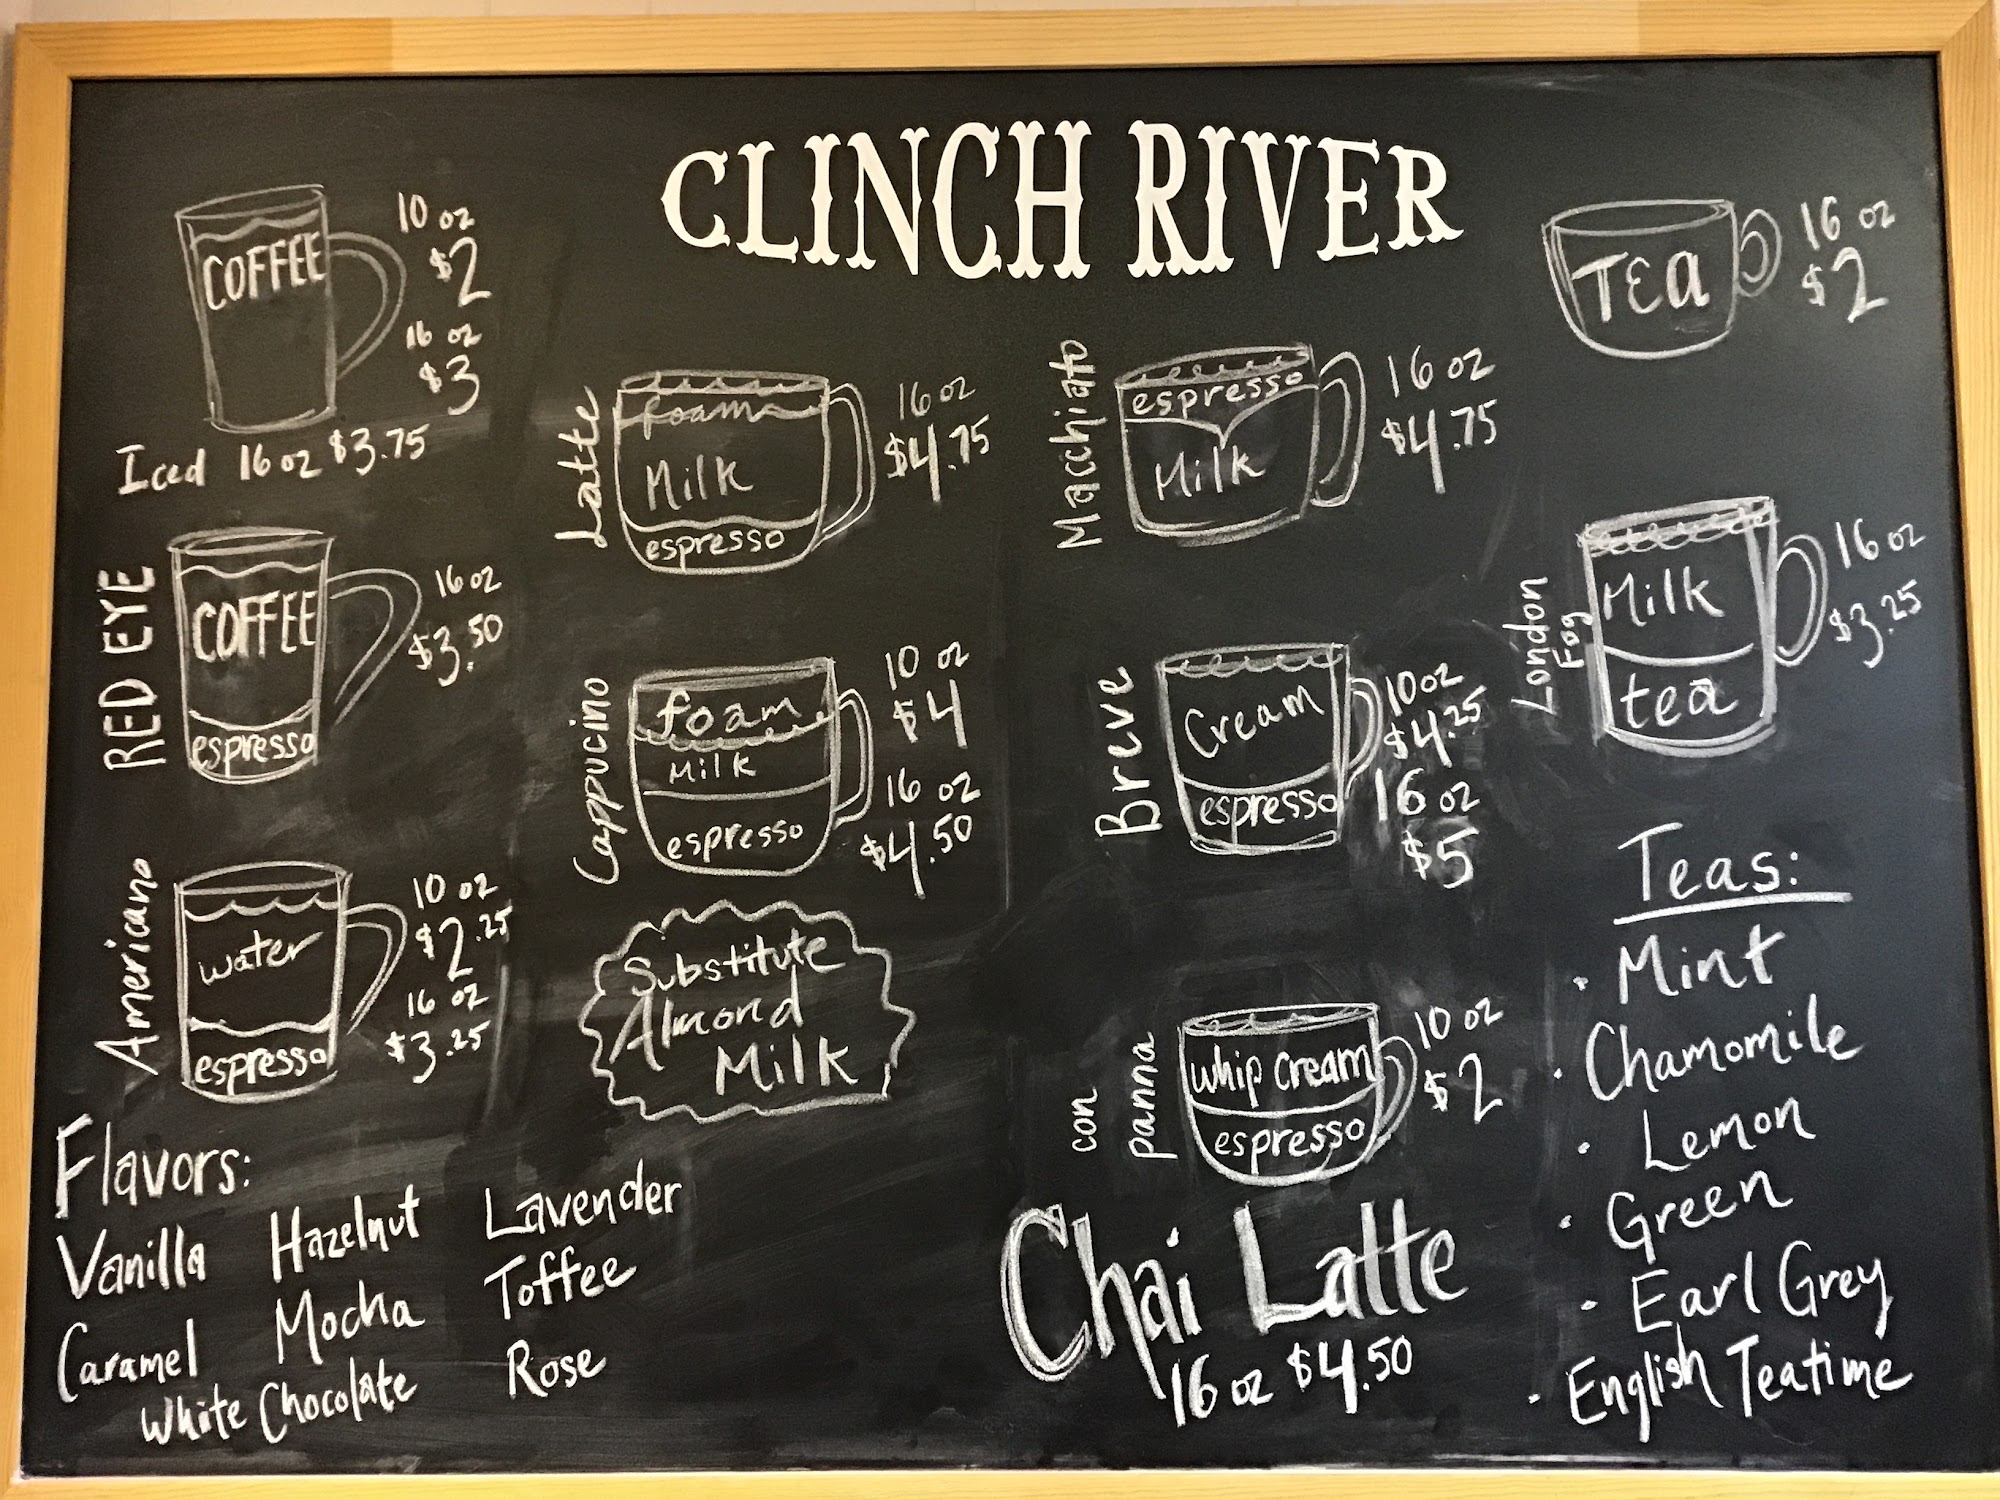 CLINCH RIVER
COFFEE
10 oz
$2
16 oz
$3
Iced 16 oz $3.75
RED EYE
COFFEE
espresso
16 oz
$3.50
Americano
water
espresso
10 oz
$2.25
16 oz
$3.25
Flavors:
Vanilla Hazelnut Lavender
Caramel Mocha Toffee
White Chocolate Rose
Latte
foam
Milk
espresso
16 oz
$4.75
Cappucino
foam
Milk
espresso
10 oz
$4
16 oz
$4.50
Substitute
Almond
Milk
Macchiato
espresso
Milk
16 oz
$4.75
Breve
Cream
espresso
10 oz
$4.25
16 oz
$5
con
panna
whip cream
espresso
10 oz
$2
Chai Latte
16 oz $4.50
TEa
16 oz
$2
London
Fog
Milk
tea
16 oz
$3.25
Teas:
· Mint
· Chamomile
· Lemon
· Green
· Earl Grey
· English Teatime